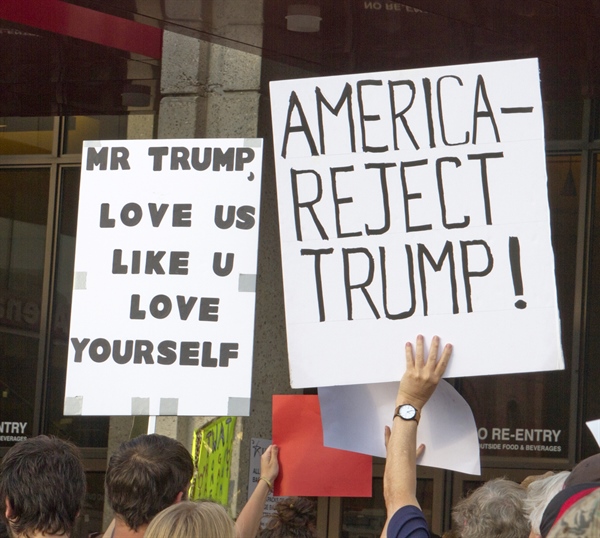 NO RE-E
MR TRUMP,
LOVE US
LIKE U
LOVE
YOURSELF
AMERICA—
REJECT
TRUMP!
NTRY
EVERAGES
O RE-ENTRY
OUTSIDE FOOD & BEVERAGES